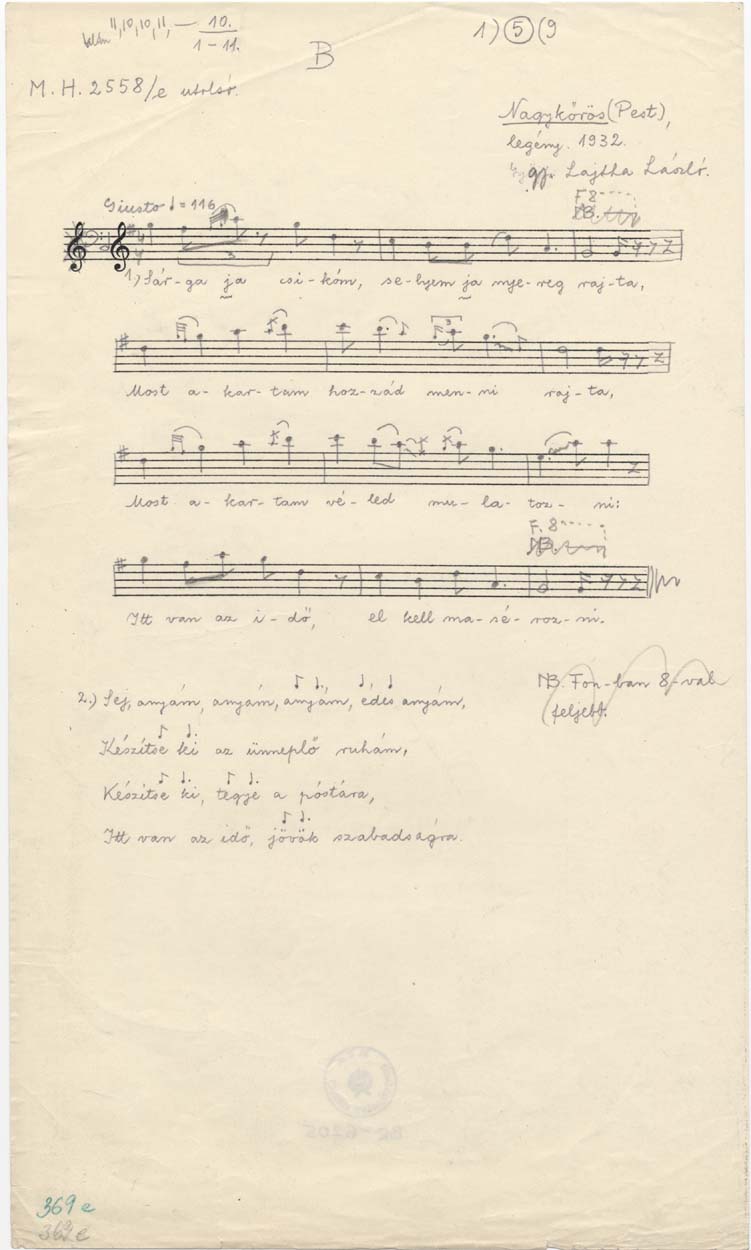 11, 10, 10, 11, — 10.
1 – 11.
1) 5 (9
B
M. H. 2558/e
Nagykőrös (Pest),
legény. 1932.
gy. Lajtha László.
Giusto ♩ = 116
F 8
NB.
3
1.) Sár-ga ja csi-kóm, se-lyem ja nye-reg raj-ta,
3
Most a-kar-tam hoz-zád men-ni raj-ta,
Most a-kar-tam vé-led mu-la-toz-ni:
F. 8
NB.
Itt van az i-dő, el kell ma-sé-roz-ni.
NB. Fon-ban 8-val
feljebb.
2.) Sej, anyám, anyám, anyám, édes anyám,
Készítse ki az ünneplő ruhám,
Készítse ki, tegye a póstára,
Itt van az idő, jövök szabadságra.
369 e
369 e